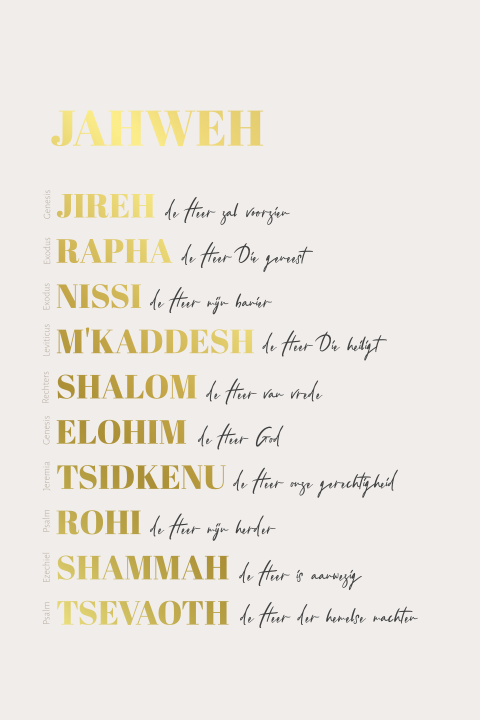 JAHWEH
Genesis JIREH de Heer zal voorzien
Exodus RAPHA de Heer Die geneest
Exodus NISSI de Heer mijn banier
Leviticus M'KADDESH de Heer Die heiligt
Rechters SHALOM de Heer van vrede
Genesis ELOHIM de Heer God
Jeremia TSIDKENU de Heer onze gerechtigheid
Psalm ROHI de Heer mijn herder
Ezechiel SHAMMAH de Heer is aanwezig
Psalm TSEVAOTH de Heer der hemelse machten